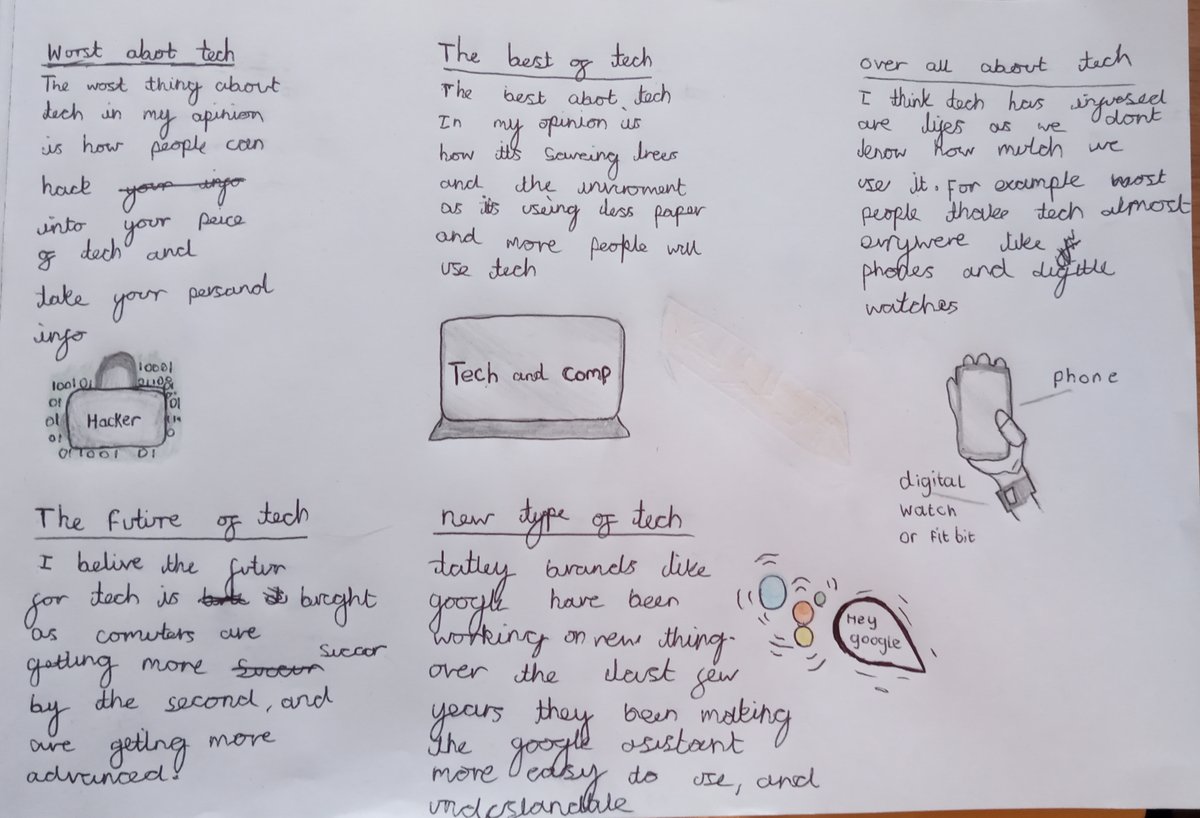 Worst abot tech
The wost thing about
tech in my opinion
is how people can
hack your info
into your peice
of tech and
take your persand
info
10001
10010
01
01100
01
01
01
Hacker
01
01
0
011001 01
The best of tech
The best abot tech
In my opinion is
how its saveing trees
and the inviroment
as its useing less paper
and more people will
use tech
Tech and comp
over all about tech
I think tech has
are lifes as we dont
know how mutch we
use it. For example most
people tech almost
like
and
watches
phone
digital
watch
or fit bit
The Future of tech
I belive the futur
for tech is bright
as comuters are
getting more Succor
by the second, and
are geting more
advanced.
new type of tech
brands like
google have been
working on new thing.
over the last few
years they been making
the google asistant
more easy to use, and
Hey
google